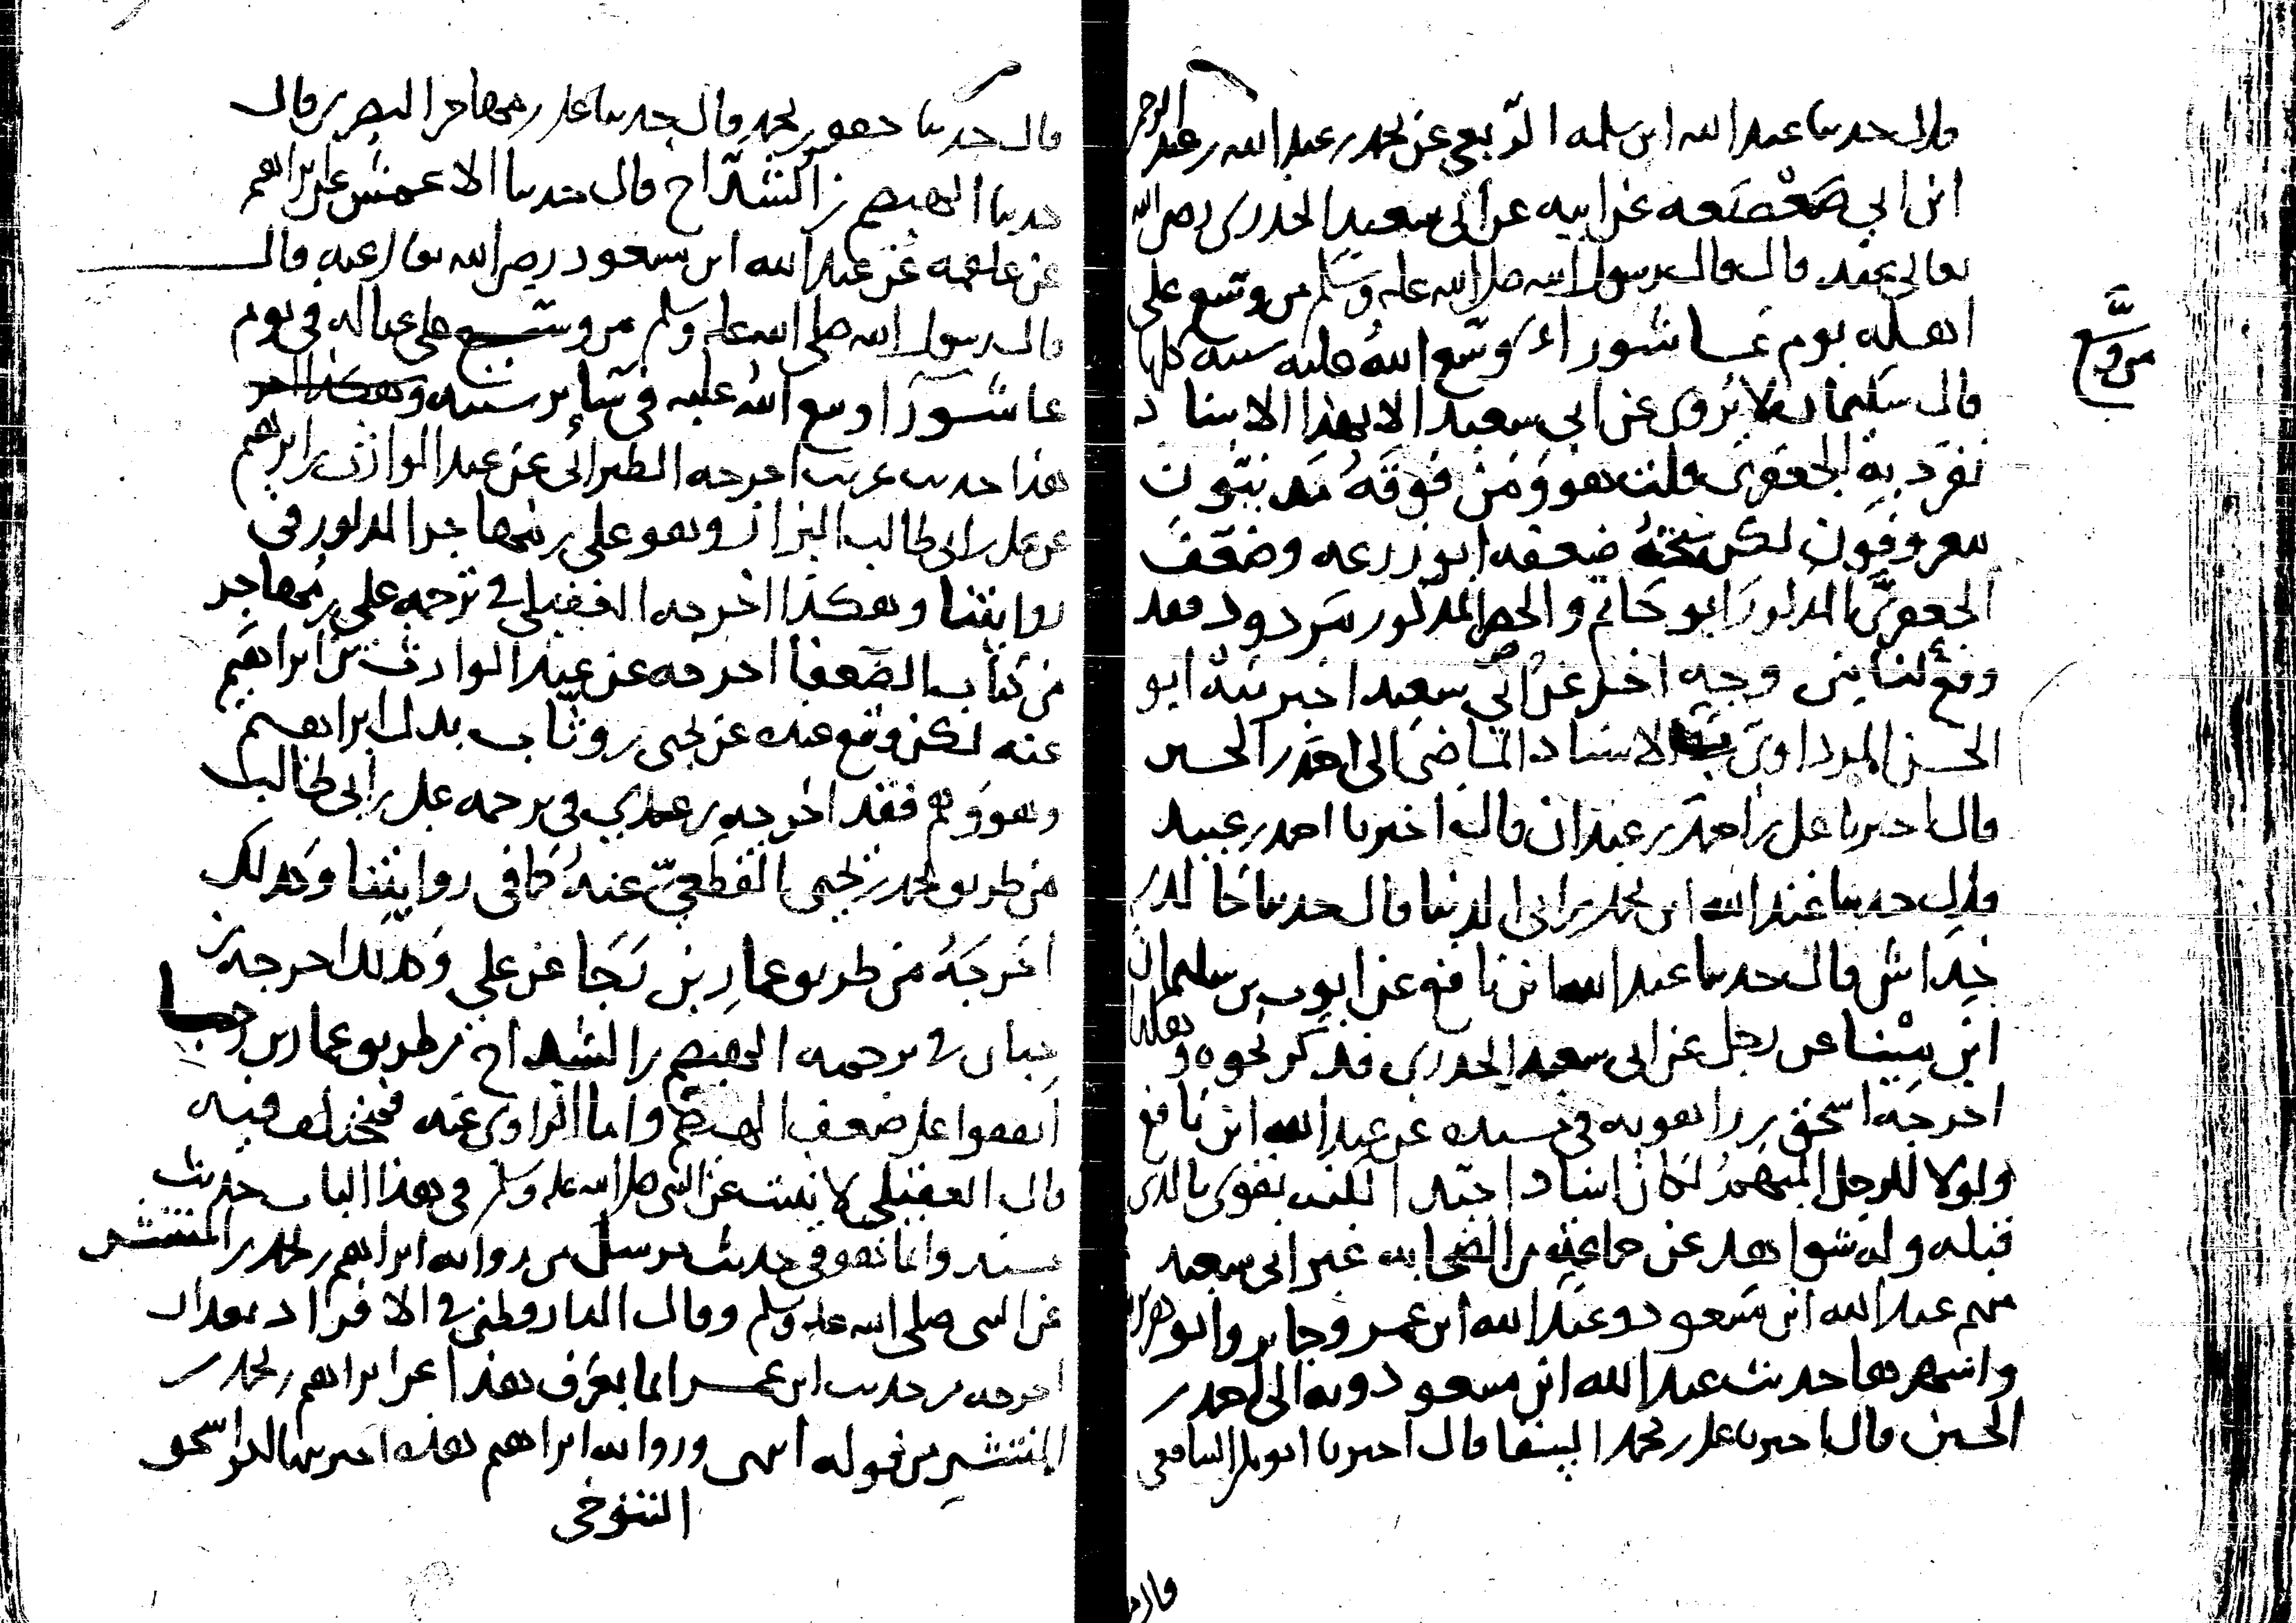 قال حدثنا عبد الله ابن سلمه الربعي عن محمد بن عبد الله بن عبد الرحمن
ابن ابي صعصعه عن ابيه عن ابي سعيد الخدري رضي الله
تعالى عنه قال قال رسول الله صلى الله عليه وسلم من وسع على
اهله يوم عاشوراء وسع الله عليه سنته كلها
من وسع
قال سليمان لا يروى عن ابي سعيد الا بهذا الاسناد
تفرد به الجعفري قلت هو ومن فوقه مدنيون
معروفون لكن شيخه ضعفه ابو زرعه وضعف
الجعفري المذكور ابو حاتم والحصر المذكور مردود فقد
وقع لنا من وجه اخر عن ابي سعيد اخبرنيه ابو
الحسن المرداوي بالاسناد الماضي الى احمد بن الحسين
قال اخبرنا علي بن احمد بن عبدان قال اخبرنا احمد بن عبيد
قال حدثنا عبد الله ابن محمد بن ابي الدنيا قال حدثنا خالد بن
خداش قال حدثنا عبد الله ابن نافع عن ايوب بن سليمان
ابن مينا عن رجل عن ابي سعيد الخدري فذكر نحوه وهكذا
اخرجه اسحق بن راهويه في مسنده عن عبد الله ابن نافع
ولولا الرجل المبهم لكان اسنادا جيدا لكنه يقوى بالذي
قبله وله شواهد عن جماعة من الصحابه غير ابي سعيد
منهم عبد الله ابن مسعود وعبد الله ابن عمر وجابر وابو هريره
واشهرها حديث عبد الله ابن مسعود وبه الى احمد بن
الحسين قال اخبرنا علي بن محمد قال اخبرنا ابو بكر الشافعي
قال حدثنا جعفر بن محمد قال حدثنا علي بن مهاجر البصري قال
حدثنا الهيصم بن الشداخ قال حدثنا الاعمش عن ابراهيم
عن علقمه عن عبد الله ابن مسعود رضي الله تعالى عنه قال
قال رسول الله صلى الله عليه وسلم من وسع على عياله في يوم
عاشورا وسع الله عليه في سائر سنته وهكذا اخر
هذا حديث غريب اخرجه الطبراني عن عبد الوارث بن ابراهيم
عن علي بن ابي طالب البزاز وهو علي بن مهاجر المذكور في
روايتنا وهكذا اخرجه العقيلي في ترجمه علي بن مهاجر
من كتاب الضعفا اخرجه عن عبد الوارث بن ابراهيم
عنه لكن وقع عنده عن يحيى بن وثاب بدل ابراهيم
وهو وهم فقد اخرجه بن عدي في ترجمه علي بن ابي طالب
من طريق محمد بن يحيى القطعي عنه كما في روايتنا وكذلك
اخرجه من طريق عمار بن رجا عن علي وكذلك اخرجه بن
حبان في ترجمه الهيصم بن الشداخ من طريق عمار بن رجا
اتفقوا على ضعف الهيصم واما الراوي عنه فمختلف فيه
قال العقيلي لا يثبت عن النبي صلى الله عليه وسلم في هذا الباب حديث
مسند وانما هو في حديث مرسل من روايه ابراهيم بن محمد بن المنتشر
عن النبي صلى الله عليه وسلم وقال الدارقطني في الافراد بعد ان
اخرجه من حديث ابن عمر انما يعرف هذا عن ابراهيم بن محمد بن
المنتشر من قوله انتهى وروايه ابراهيم هذه اخبرنيها ابو اسحق
التنوخي